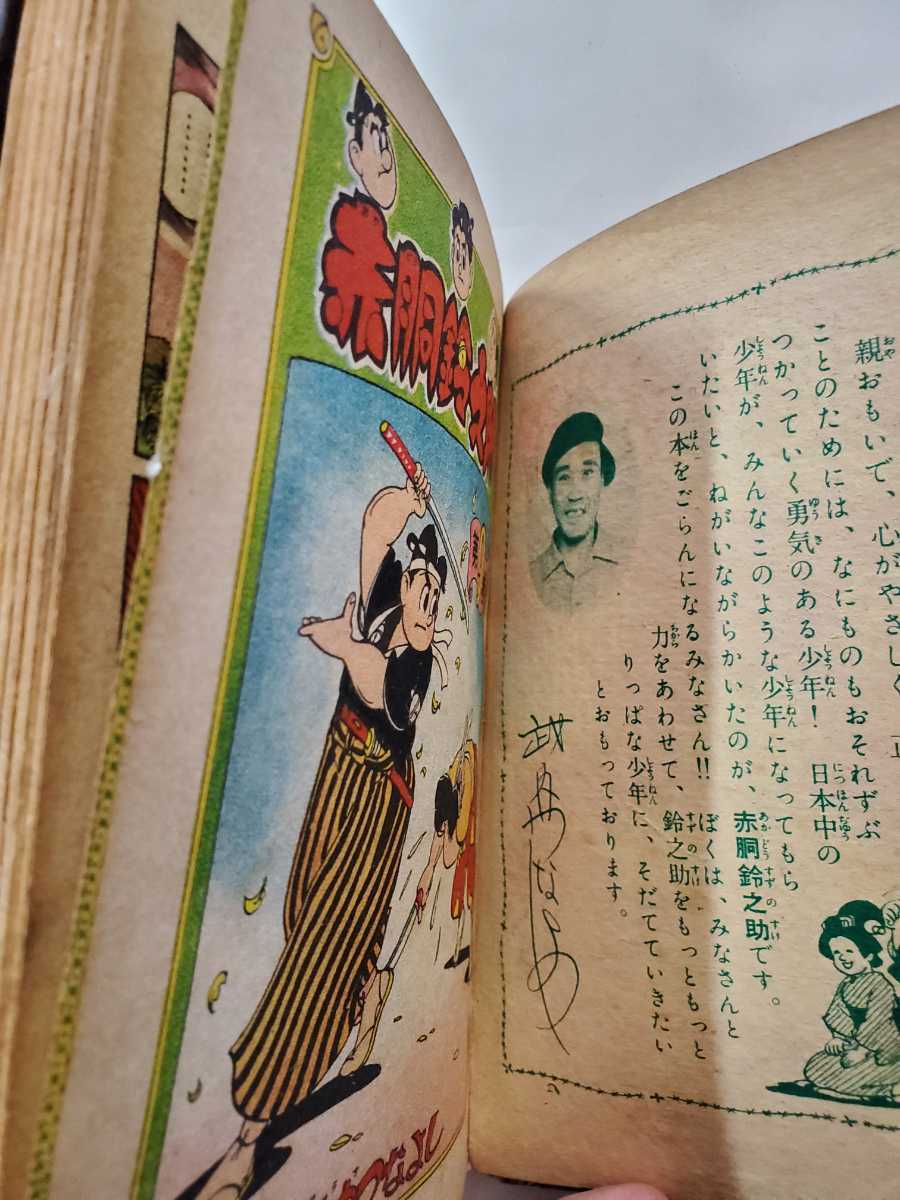 赤胴鈴之
つなよし
親おもいで、心がやさしく
ことのためには、なにものもおそれずぶ
つかっていく勇気のある少年! 日本中の
少年が、みんなこのような少年になってもら
いたいと、ねがいながらかいたのが、赤胴鈴之助です。
この本をごらんになるみなさん!! ぼくは、みなさんと
力をあわせて、鈴之助をもっともっと
りっぱな少年に、そだてていきたい
とおもっております。
武内つなよし